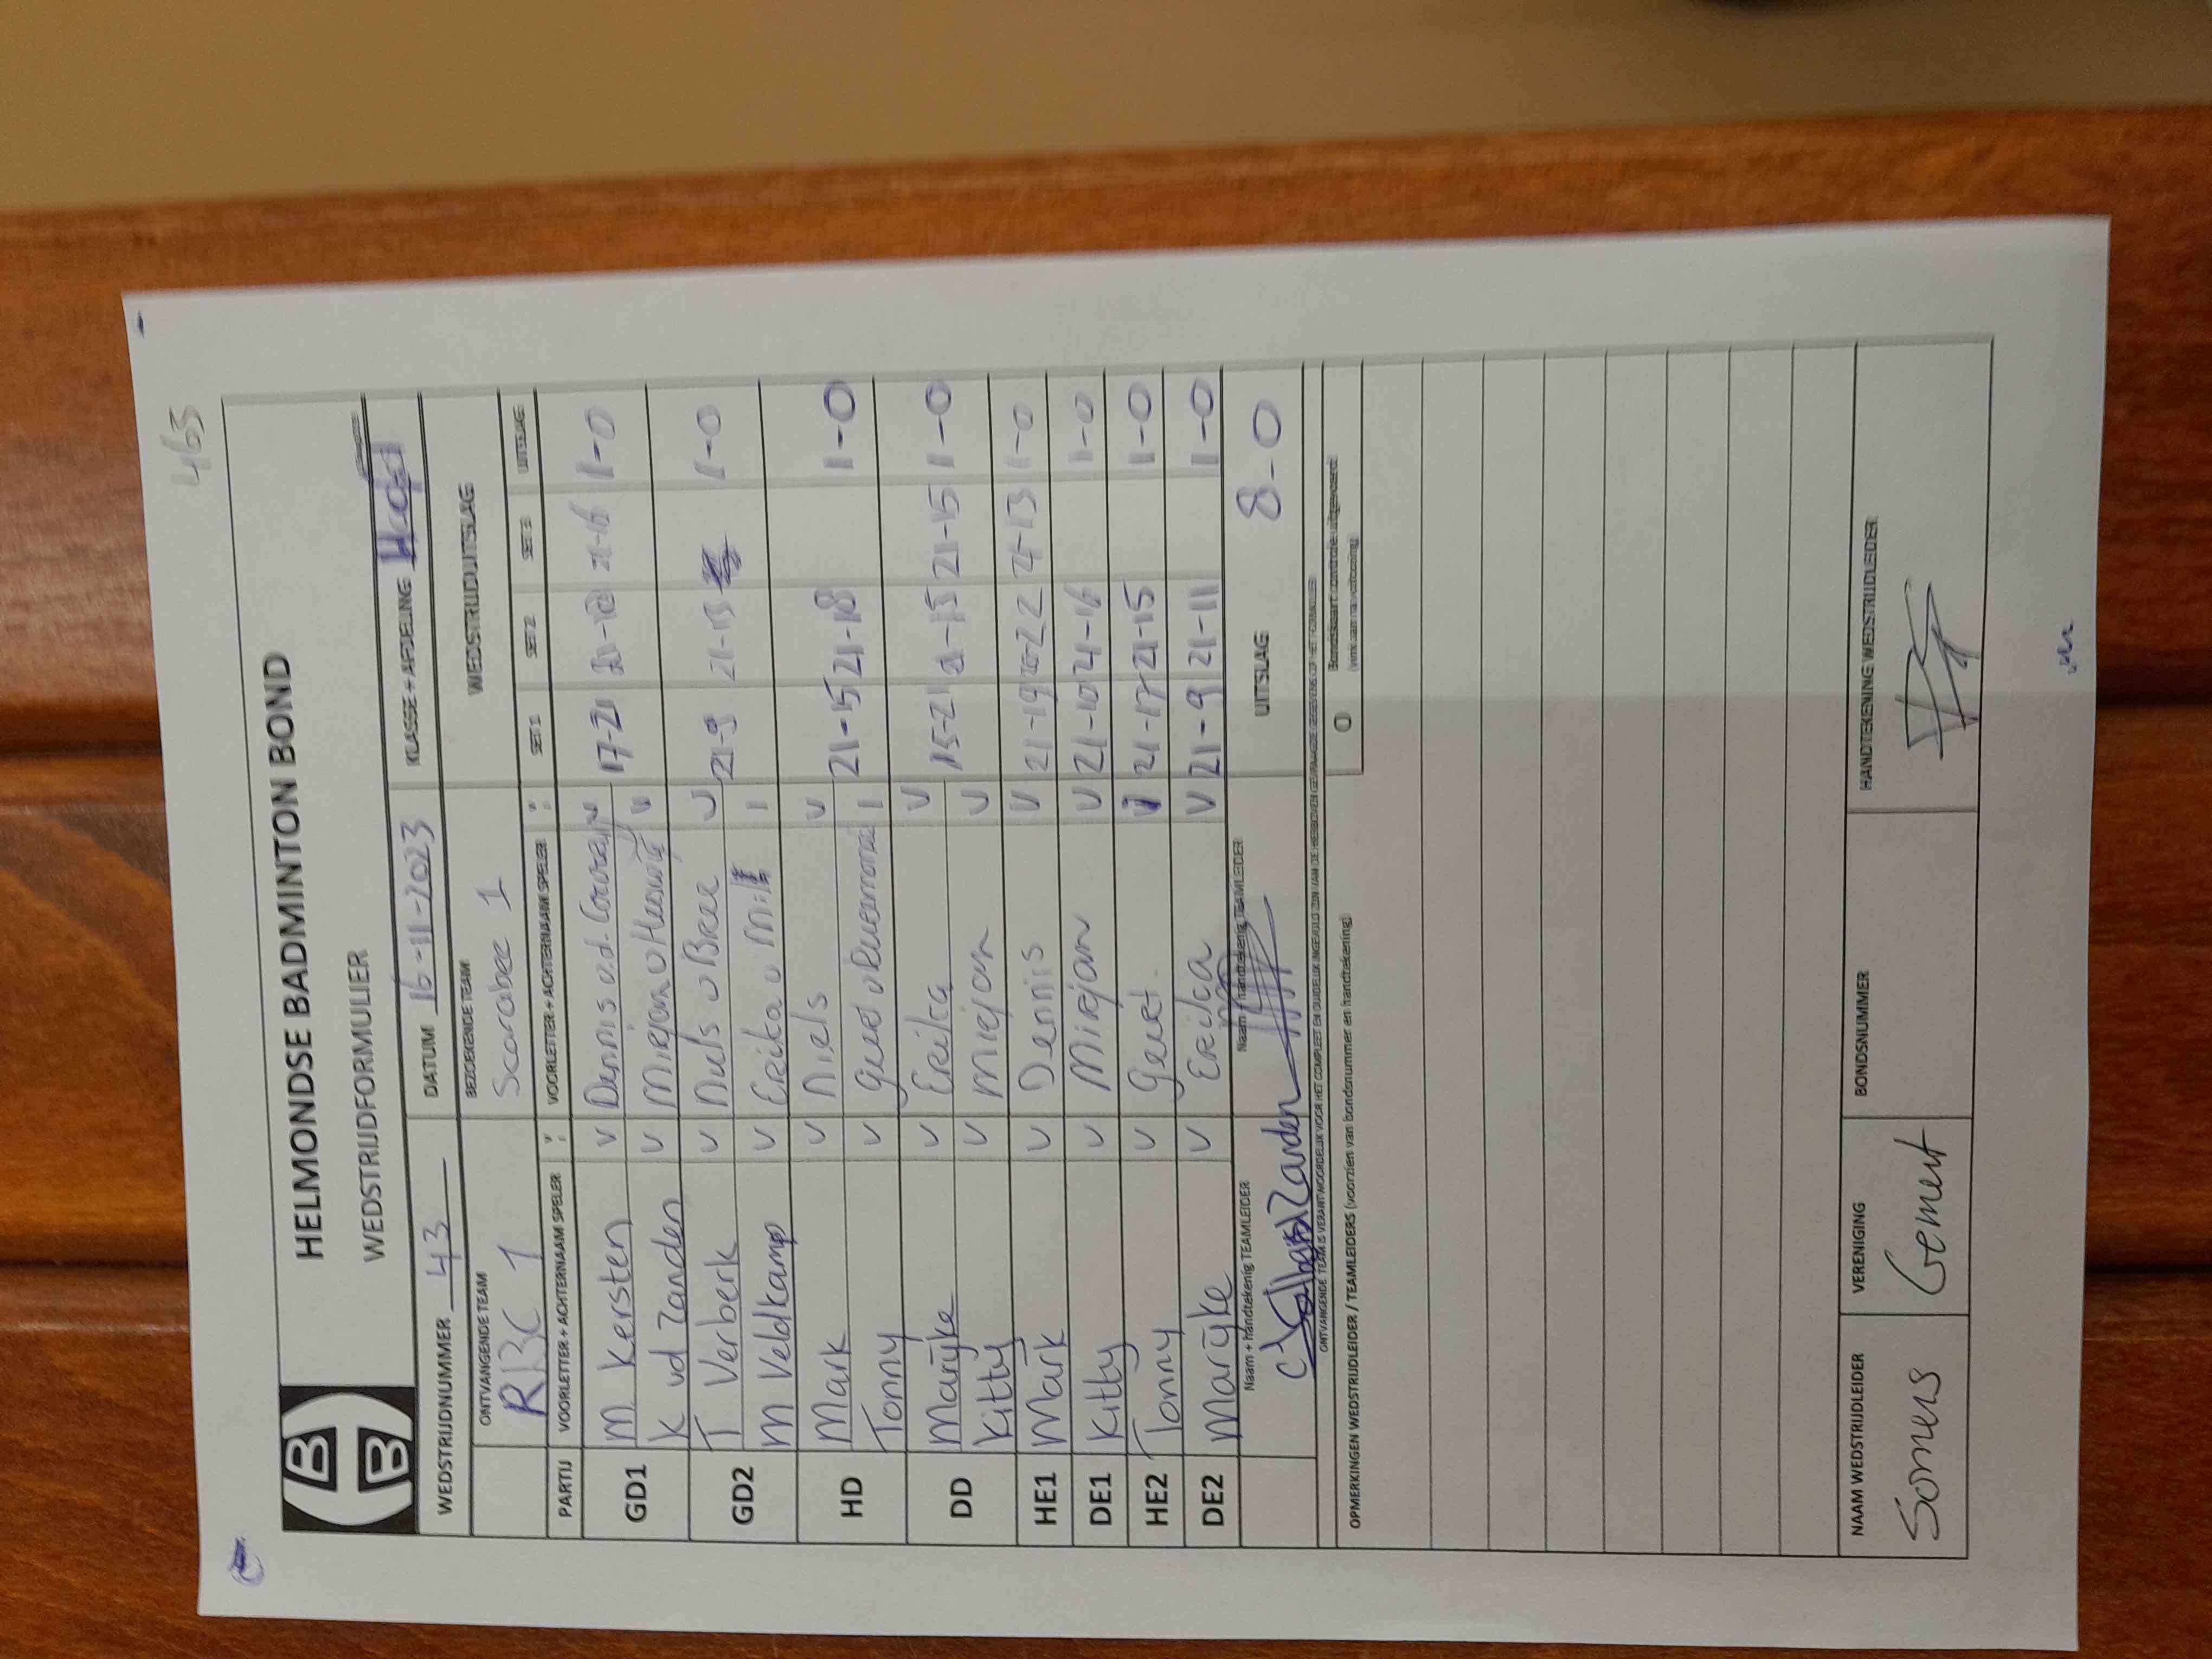 463
HELMONDSE BADMINTON BOND
WEDSTRIJDFORMULIER
WEDSTRIJDNUMMER 43 DATUM 16-11-2023 KLASSE + AFDELING
ONTVANGENDE TEAM BEZOEKENDE TEAM WEDSTRIJDUITSLAG
RBC 1 Scarabee 1
PARTIJ VOORLETTER + ACHTERNAAM SPELER V VOORLETTER + ACHTERNAAM SPELER V SET 1 SET 2 SET 3 UITSLAG
GD1 M. Kersten V Dennis v.d. 17-21 21-16 1-0
K vd Zanden V Mirjan V
GD2 T Verberk V Niels v Bree V 21-9 21-13 1-0
M Veldkamp V Erika v Mill I
HD Mark V Niels V 21-15 21-18 1-0
Tonny V I
DD Marijke V Erika V 15-21 21-15 21-15 1-0
Kitty V Mirjan V
HE1 Mark V Dennis V 21-19 20-22 21-13 1-0
DE1 Kitty V Mirjan V 21-10 21-16 1-0
HE2 Tonny V Geert V 21-17 21-15 1-0
DE2 Marijke V Erika V 21-9 21-11 1-0
Naam + handtekenig TEAMLEIDER Naam + handtekenig TEAMLEIDER UITSLAG 8-0
Zanden
ONTVANGENDE TEAM IS VERANTWOORDELIJK VOOR HET COMPLEET EN DUIDELIJK INGEVULD ZIJN VAN DE HIERBOVEN GEVRAAGDE GEGEVENS OP HET FORMULIER
OPMERKINGEN WEDSTRIJDLEIDER / TEAMLEIDERS (voorzien van bondsnummer en handtekening) O Bondskaart controle uitgevoerd:
NAAM WEDSTRIJDLEIDER VERENIGING BONDSNUMMER HANDTEKENING WEDSTRIJDLEIDER
Somers Gemert